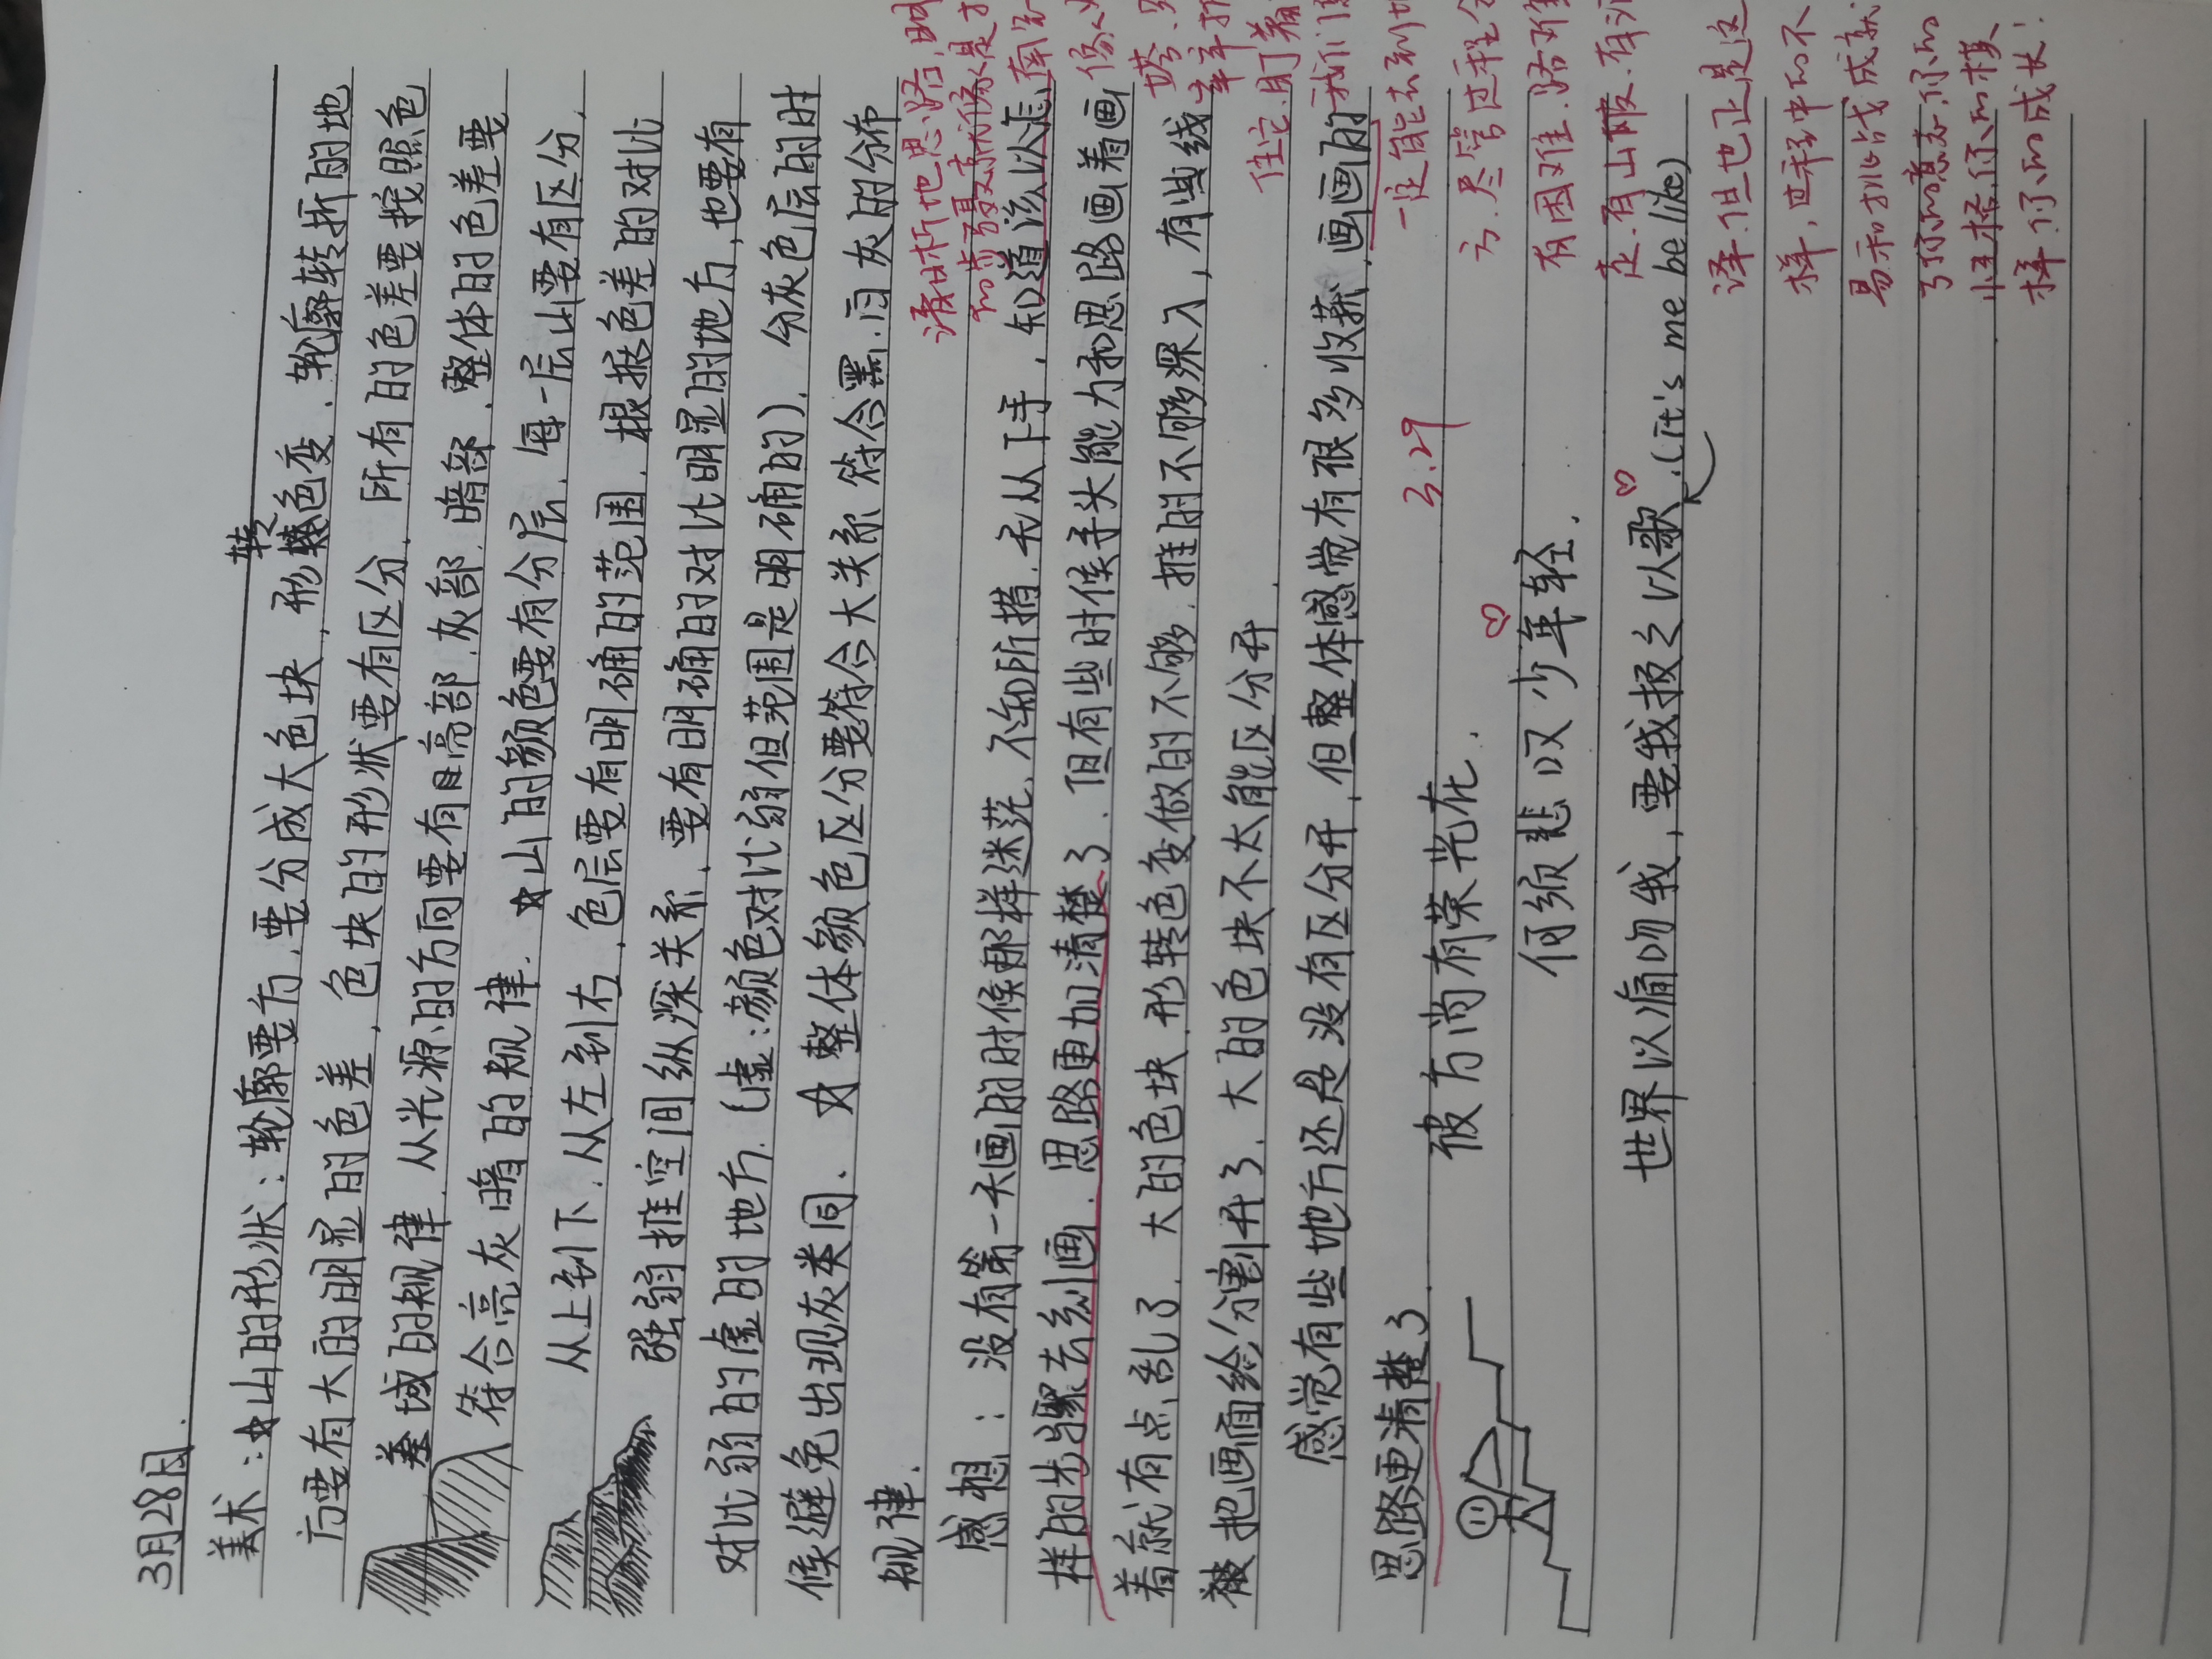 3月28日.
美术:☆山的形状:轮廓要方,要分成大色块,形转色变.轮廓转折的地
方要有大的明显的色差,色块的形状要有区分.所有的色差要按照色
差域的规律.从光源的方向要有亮部.灰部.暗部.整体的色差要
符合亮灰暗的规律.☆山的颜色要有分层.每一层山要有区分,
从上到下.从左到右,色层要有明确的范围.根据色差的对比
强弱推空间纵深关系.要有明确的对比明显的地方,也要有
对比弱的虚的地方.(虚:颜色对比弱但范围是明确的).分灰色层的时
候避免出现灰类同.☆整体颜色区分要符合大关系.符合黑.白灰的分布
规律.
感想:没有第一天画的时候那样迷茫.不知所措.无从下手,知道该以怎
样的步骤去刻画.思路更加清楚了.但有些时候手头能力和思路画着画
着就有点乱了.大的色块.形转色变做的不够.推的不够深入,有些线
被把画面给分割开了.大的色块不太能区分开.
感觉有些地方还是没有区分开,但整体感觉有很多收获.画画的
思路更清楚了
彼方尚有荣光在.
何须悲叹少年轻.
世界以痛吻我,要我报之以歌.(it's me be like)
清晰地思路,明
3.29
一定能去到
尽管过程
有困难.路难
走.有山陂.有
泽.但也正是这
样,过程中的不
易和挑战成就
了你.的意志.你的
性格.你的模
样.你的成长!